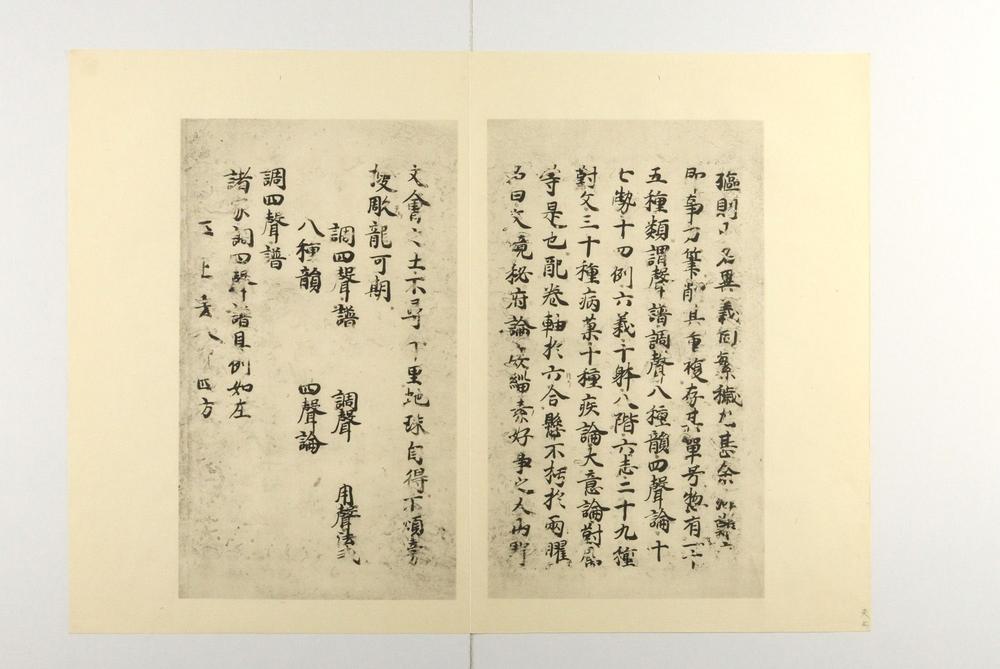 則名異義同繁穢尤甚余
即事刀筆削其重複存其單号惣有一十
五種類謂聲譜調聲八種韻四聲論十
七勢十四例六義十躰八階六志二十九種
對文三十種病菓十種疾論文意論對属
等是也配卷軸於六合懸不朽於兩曜
名曰文鏡秘府論緇素好事之人山野
文會之士不尋千里蛇珠自得不煩旁
搜彫龍可期
調四聲譜 調聲 用聲法式
八種韻 四聲論
調四聲譜
諸家調四聲譜具例如左
平上去入 四方